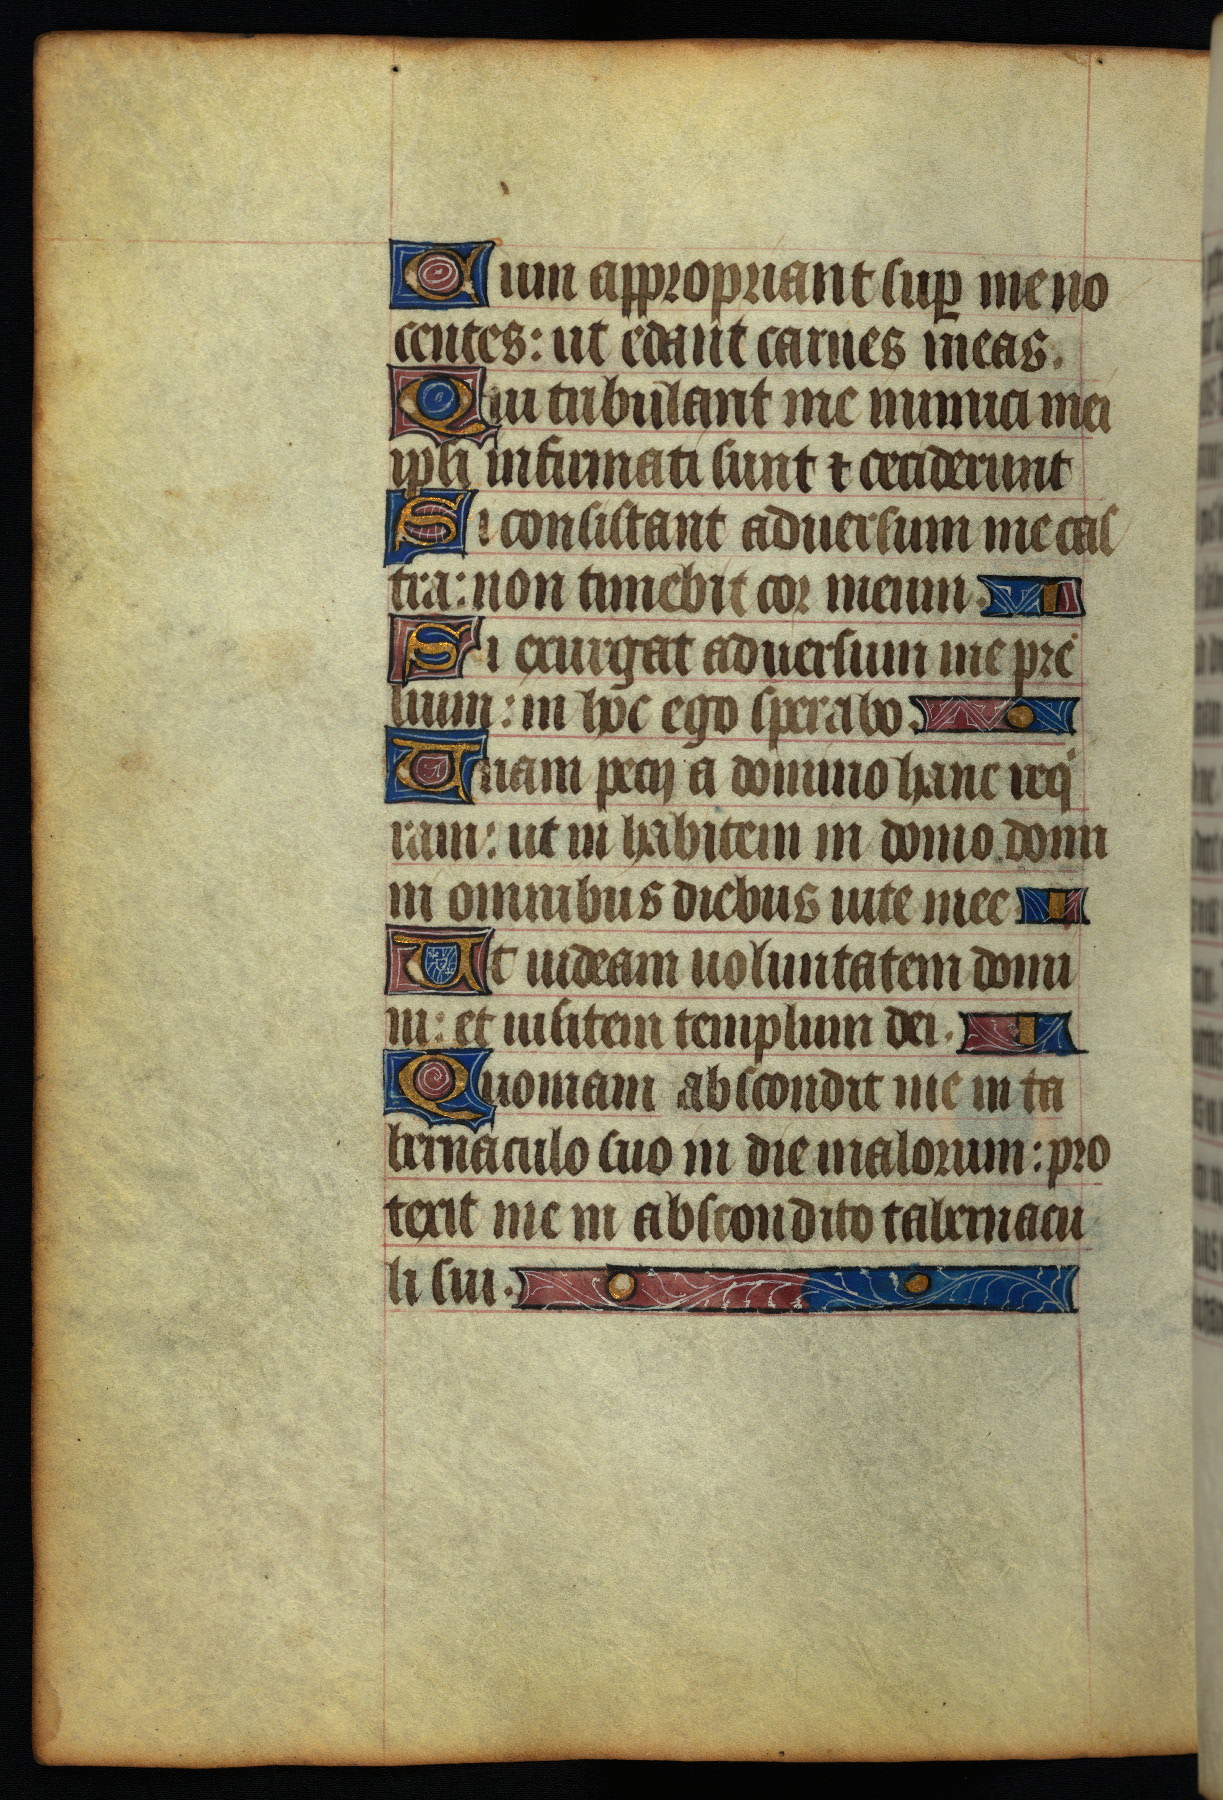 Dum appropriant sup me no
centes: ut edant carnes meas.
Qui tribulant me inimici mei
ipsi infirmati sunt ⁊ ceciderunt
Si consistant adversum me cas
tra: non timebit cor meum.
Si exurgat adversum me pre
lium: in hoc ego sperabo.
Unam pecij a domino hanc req
ram: ut in habitem in domo domi
ni omnibus diebus uite mee
Ut uideam uoluntatem domi
ni: et uisitem templum dei.
Quoniam abscondit me in ta
bernaculo suo in die malorum: pro
texit me in abscondito tabernacu
li sui.